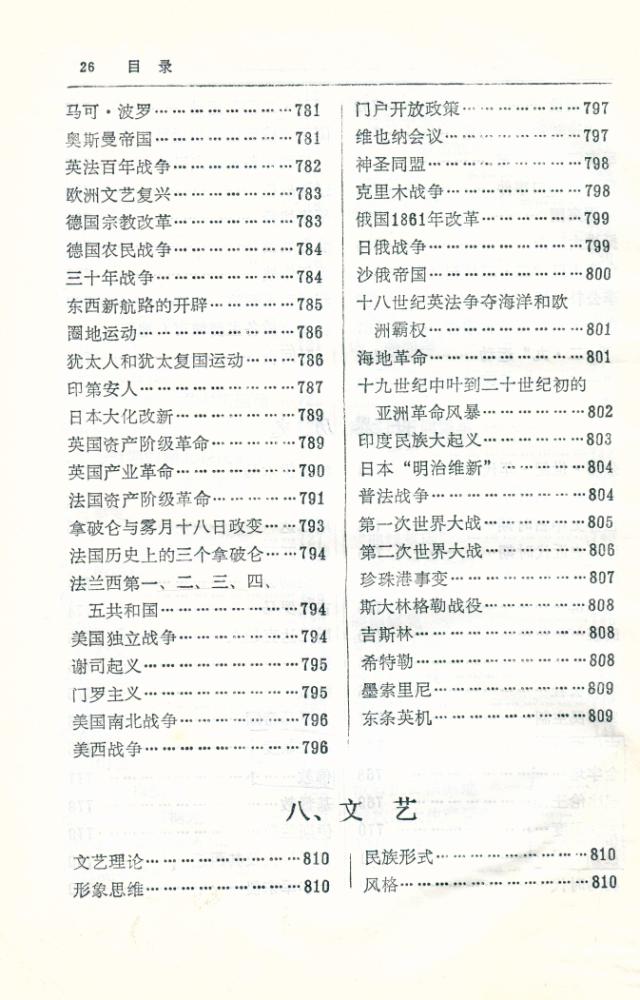 26 目 录
马可·波罗………………781
奥斯曼帝国………………781
英法百年战争………………782
欧洲文艺复兴………………783
德国宗教改革………………783
德国农民战争………………784
三十年战争………………784
东西新航路的开辟…………785
圈地运动………………786
犹太人和犹太复国运动………786
印第安人………………787
日本大化改新………………789
英国资产阶级革命…………789
英国产业革命………………790
法国资产阶级革命…………791
拿破仑与雾月十八日政变……793
法国历史上的三个拿破仑……794
法兰西第一、二、三、四、
五共和国………………794
美国独立战争………………794
谢司起义………………795
门罗主义………………795
美国南北战争………………796
美西战争………………796
门户开放政策………………797
维也纳会议………………797
神圣同盟………………798
克里木战争………………798
俄国1861年改革……………799
日俄战争………………799
沙俄帝国………………800
十八世纪英法争夺海洋和欧
洲霸权………………801
海地革命………………801
十九世纪中叶到二十世纪初的
亚洲革命风暴……………802
印度民族大起义……………803
日本“明治维新”……………804
普法战争………………804
第一次世界大战……………805
第二次世界大战……………806
珍珠港事变………………807
斯大林格勒战役……………808
吉斯林………………808
希特勒………………808
墨索里尼………………809
东条英机………………809
八、文 艺
文艺理论………………810
形象思维………………810
民族形式………………810
风格………………810